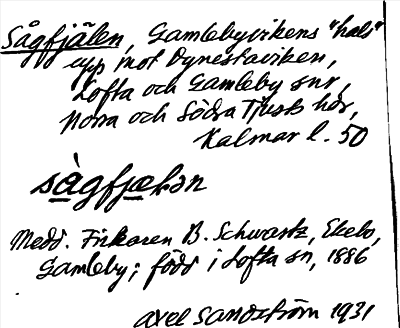 Sågfjälen, Gamlebyvikens "hals"
upp mot Dynestaviken,
Lofta och Gamleby snr,
Norra och Södra Tjusts hdr,
Kalmar l. 50
sàgfjælən
Medd. Fiskaren B. Schwartz, Ekebo,
Gamleby; född i Lofta sn, 1886
Axel Sandström 1931